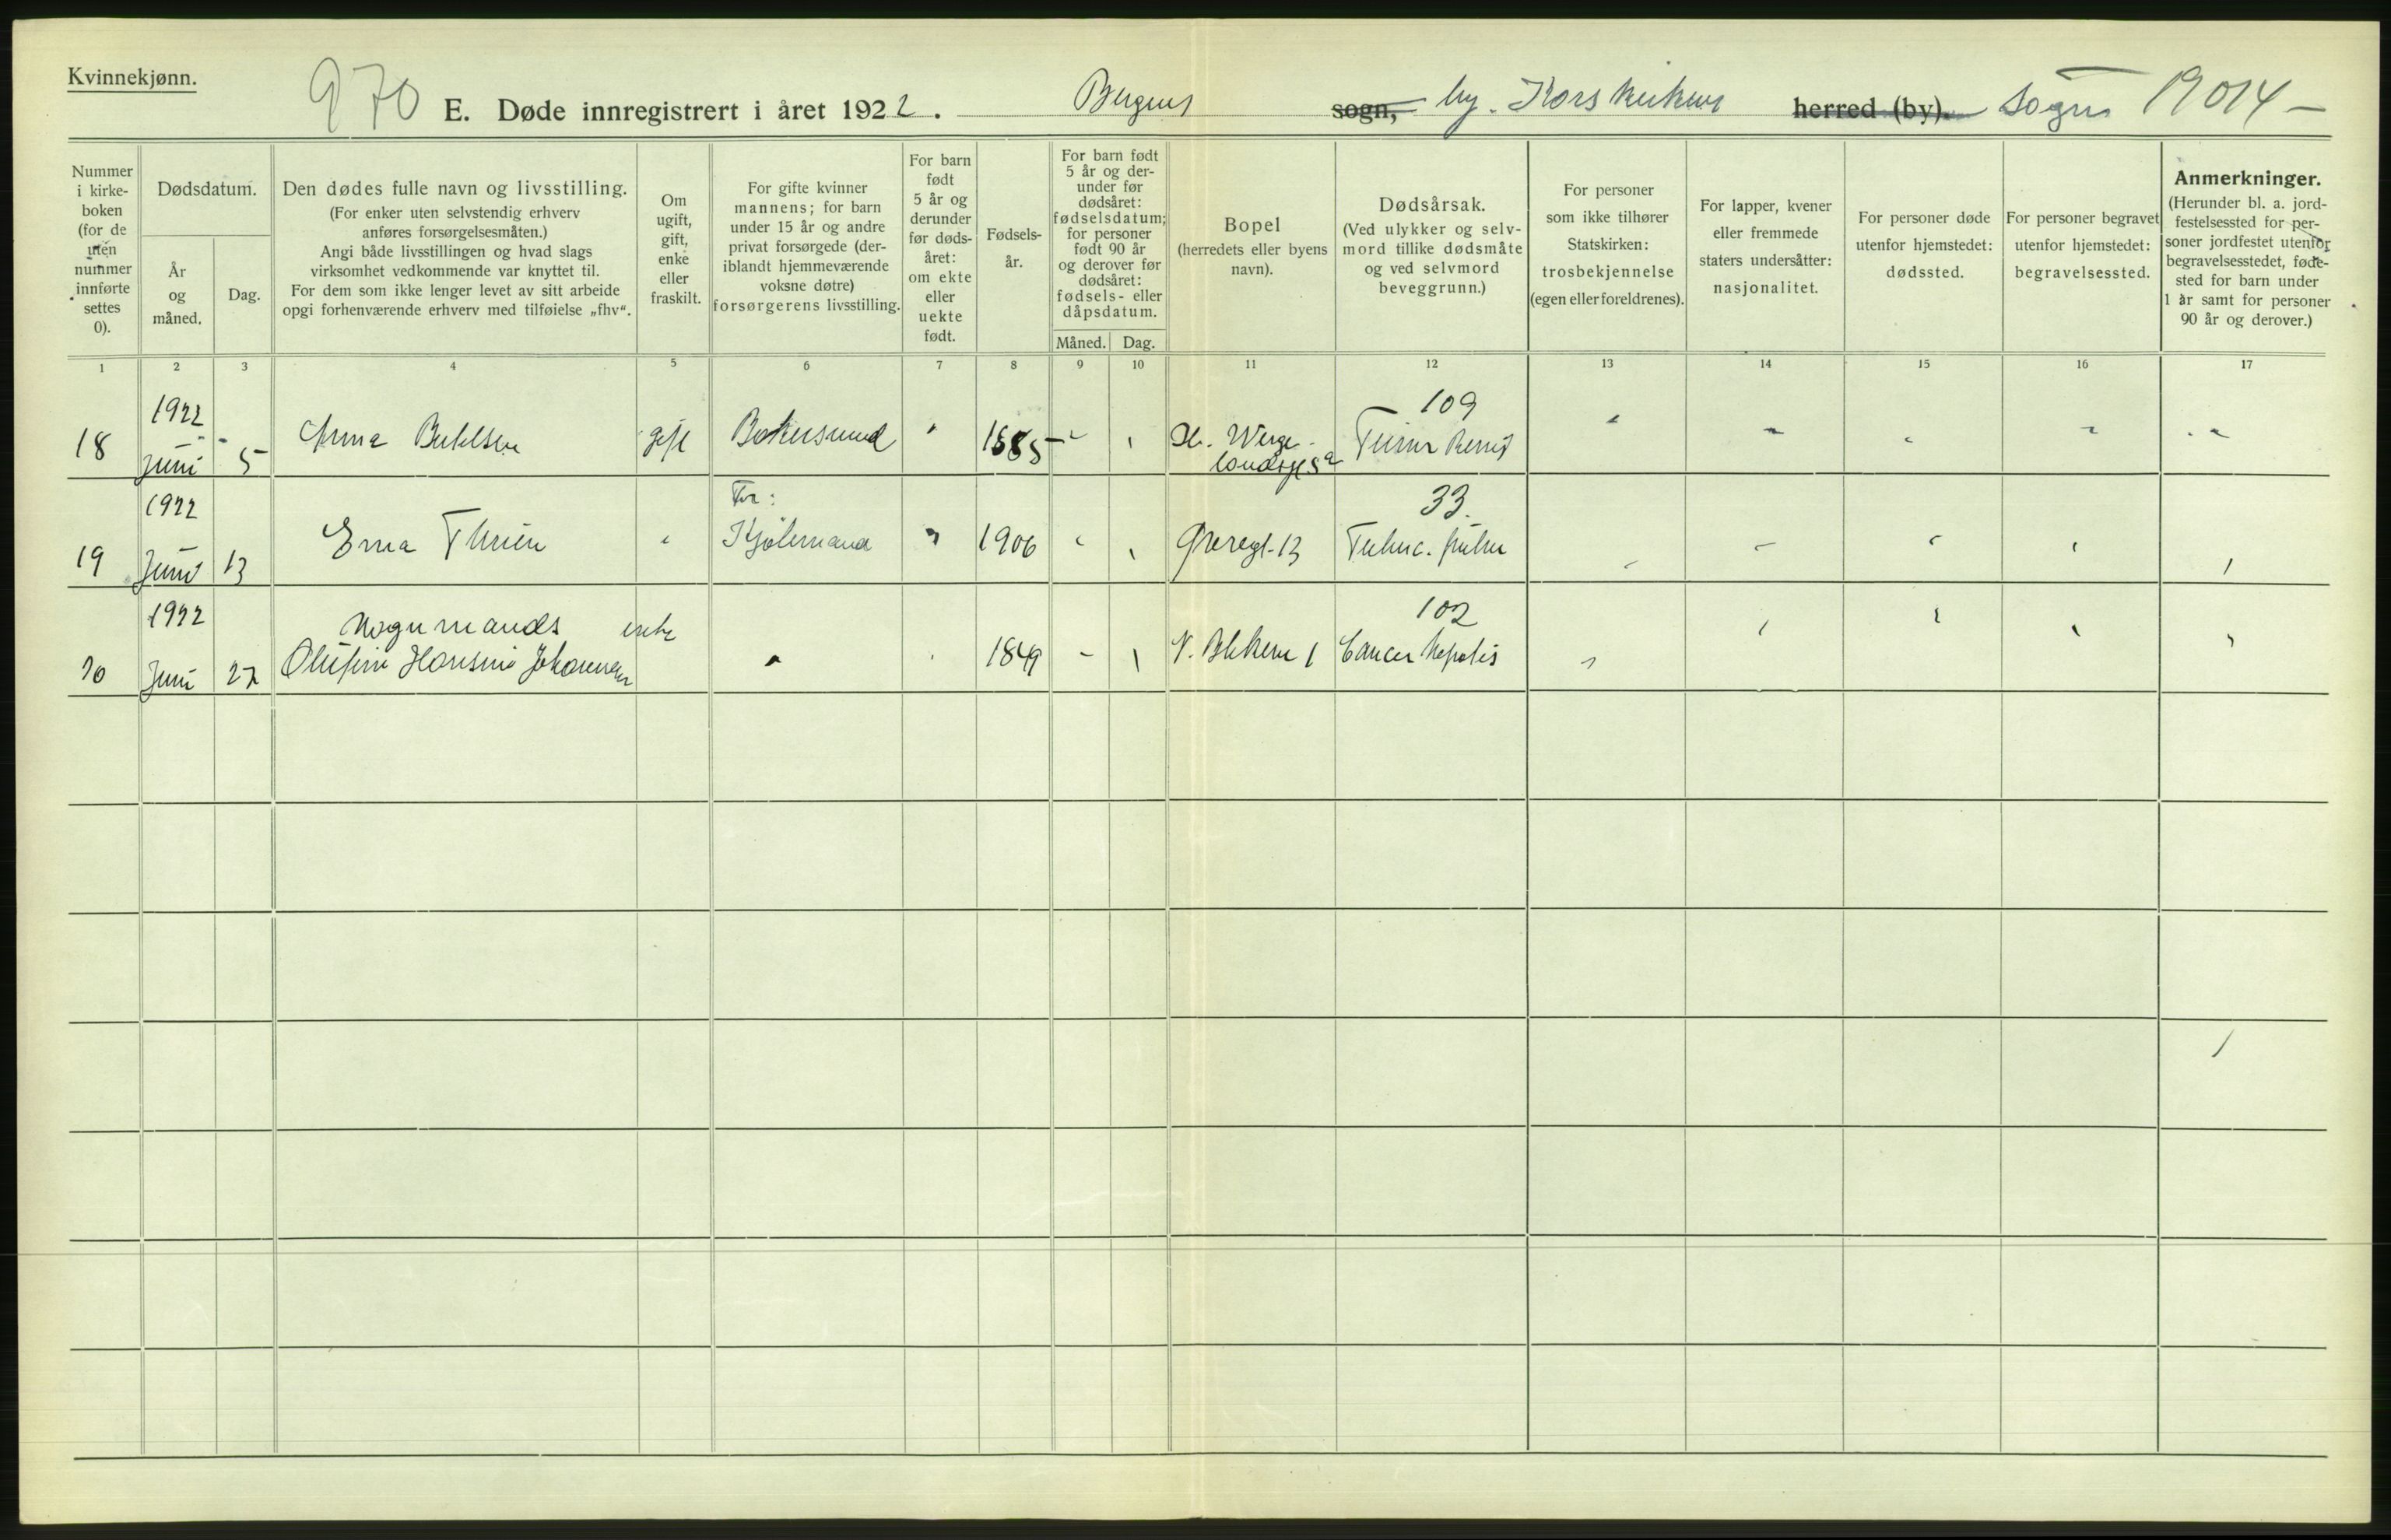 Kvinnekjønn.
970 E. Døde innregistrert i året 1922. Bergens sogn, by. Korskirkens herred (by). Sogn 19014 –
Nummer
i kirke-
boken
(for de
uten
nummer
innførte
settes
0).
Dødsdatum.
År
og
måned.
Dag.
Den dødes fulle navn og livsstilling.
(For enker uten selvstendig erhverv
anføres forsørgelsesmåten.)
Angi både livsstillingen og hvad slags
virksomhet vedkommende var knyttet til.
For dem som ikke lenger levet av sitt arbeide
opgi forhenværende erhverv med tilføielse „fhv“.
Om
ugift,
gift,
enke
eller
fraskilt.
For gifte kvinner
mannens; for barn
under 15 år og andre
privat forsørgede (der-
iblandt hjemmeværende
voksne døtre)
forsørgerens livsstilling.
For barn
født
5 år og
derunder
før døds-
året:
om ekte
eller
uekte
født.
Fødsels-
år.
For barn født
5 år og der-
under før
dødsåret:
fødselsdatum;
for personer
født 90 år
og derover før
dødsåret:
fødsels- eller
dåpsdatum.
Måned. Dag.
Bopel
(herredets eller byens
navn).
Dødsårsak.
(Ved ulykker og selv-
mord tillike dødsmåte
og ved selvmord
beveggrunn.)
For personer
som ikke tilhører
Statskirken:
trosbekjennelse
(egen eller foreldrenes).
For lapper, kvener
eller fremmede
staters undersåtter:
nasjonalitet.
For personer døde
utenfor hjemstedet:
dødssted.
For personer begravet
utenfor hjemstedet:
begravelsessted.
Anmerkninger.
(Herunder bl. a. jord-
festelsessted for per-
soner jordfestet utenfor
begravelsesstedet, føde-
sted for barn under
1 år samt for personer
90 år og derover.)
1 2 3 4 5 6 7 8 9 10 11 12 13 14 15 16 17
1922 109
18 Juni 5 Anna gift 1885 H. Werge-
landsgt 5a
1922 Fr: 33.
19 Juni 13 Erna Kjølemand 1906 13
1922 Vognmands enke 102
20 Juni 27 Olufine Hansine Johannesen 1849 N. Blekevei 1 Cancer hepatis